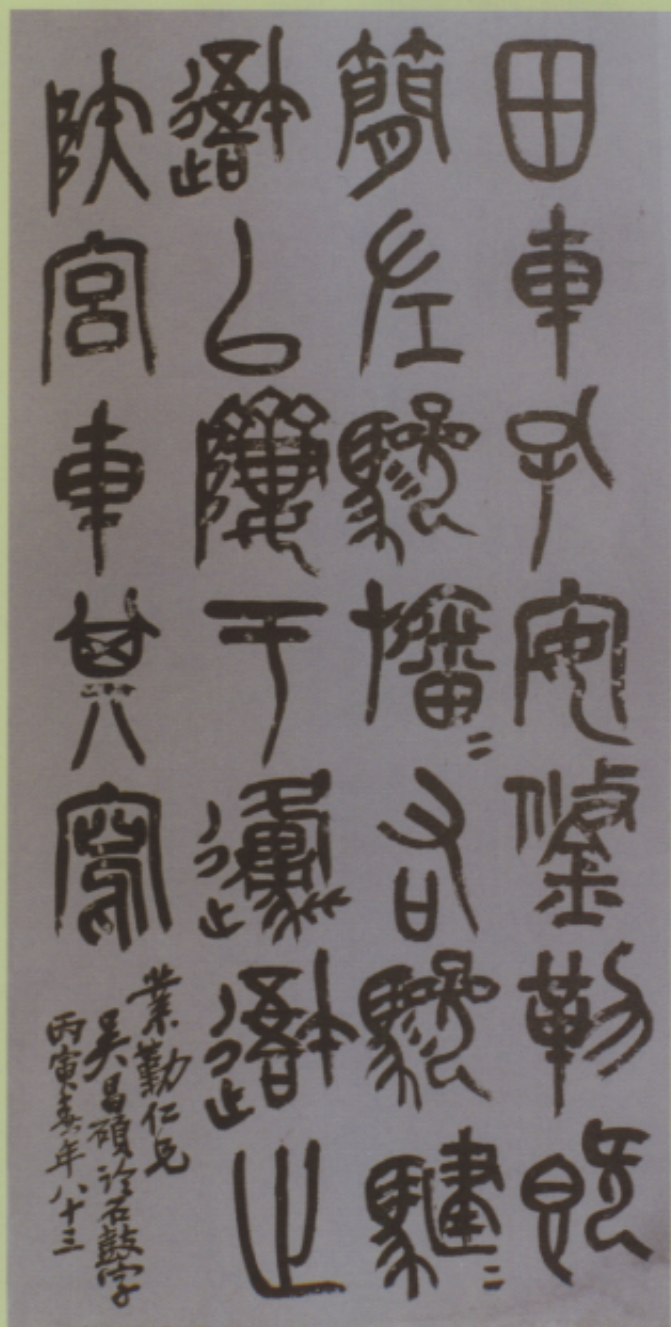 田車孔安鋚勒既
簡左驂旛〻右驂騝〻
吾以隮于邍吾止
陜宮車其寫
業勤仁兄
吴昌碩臨石鼓字
丙寅春年八十三